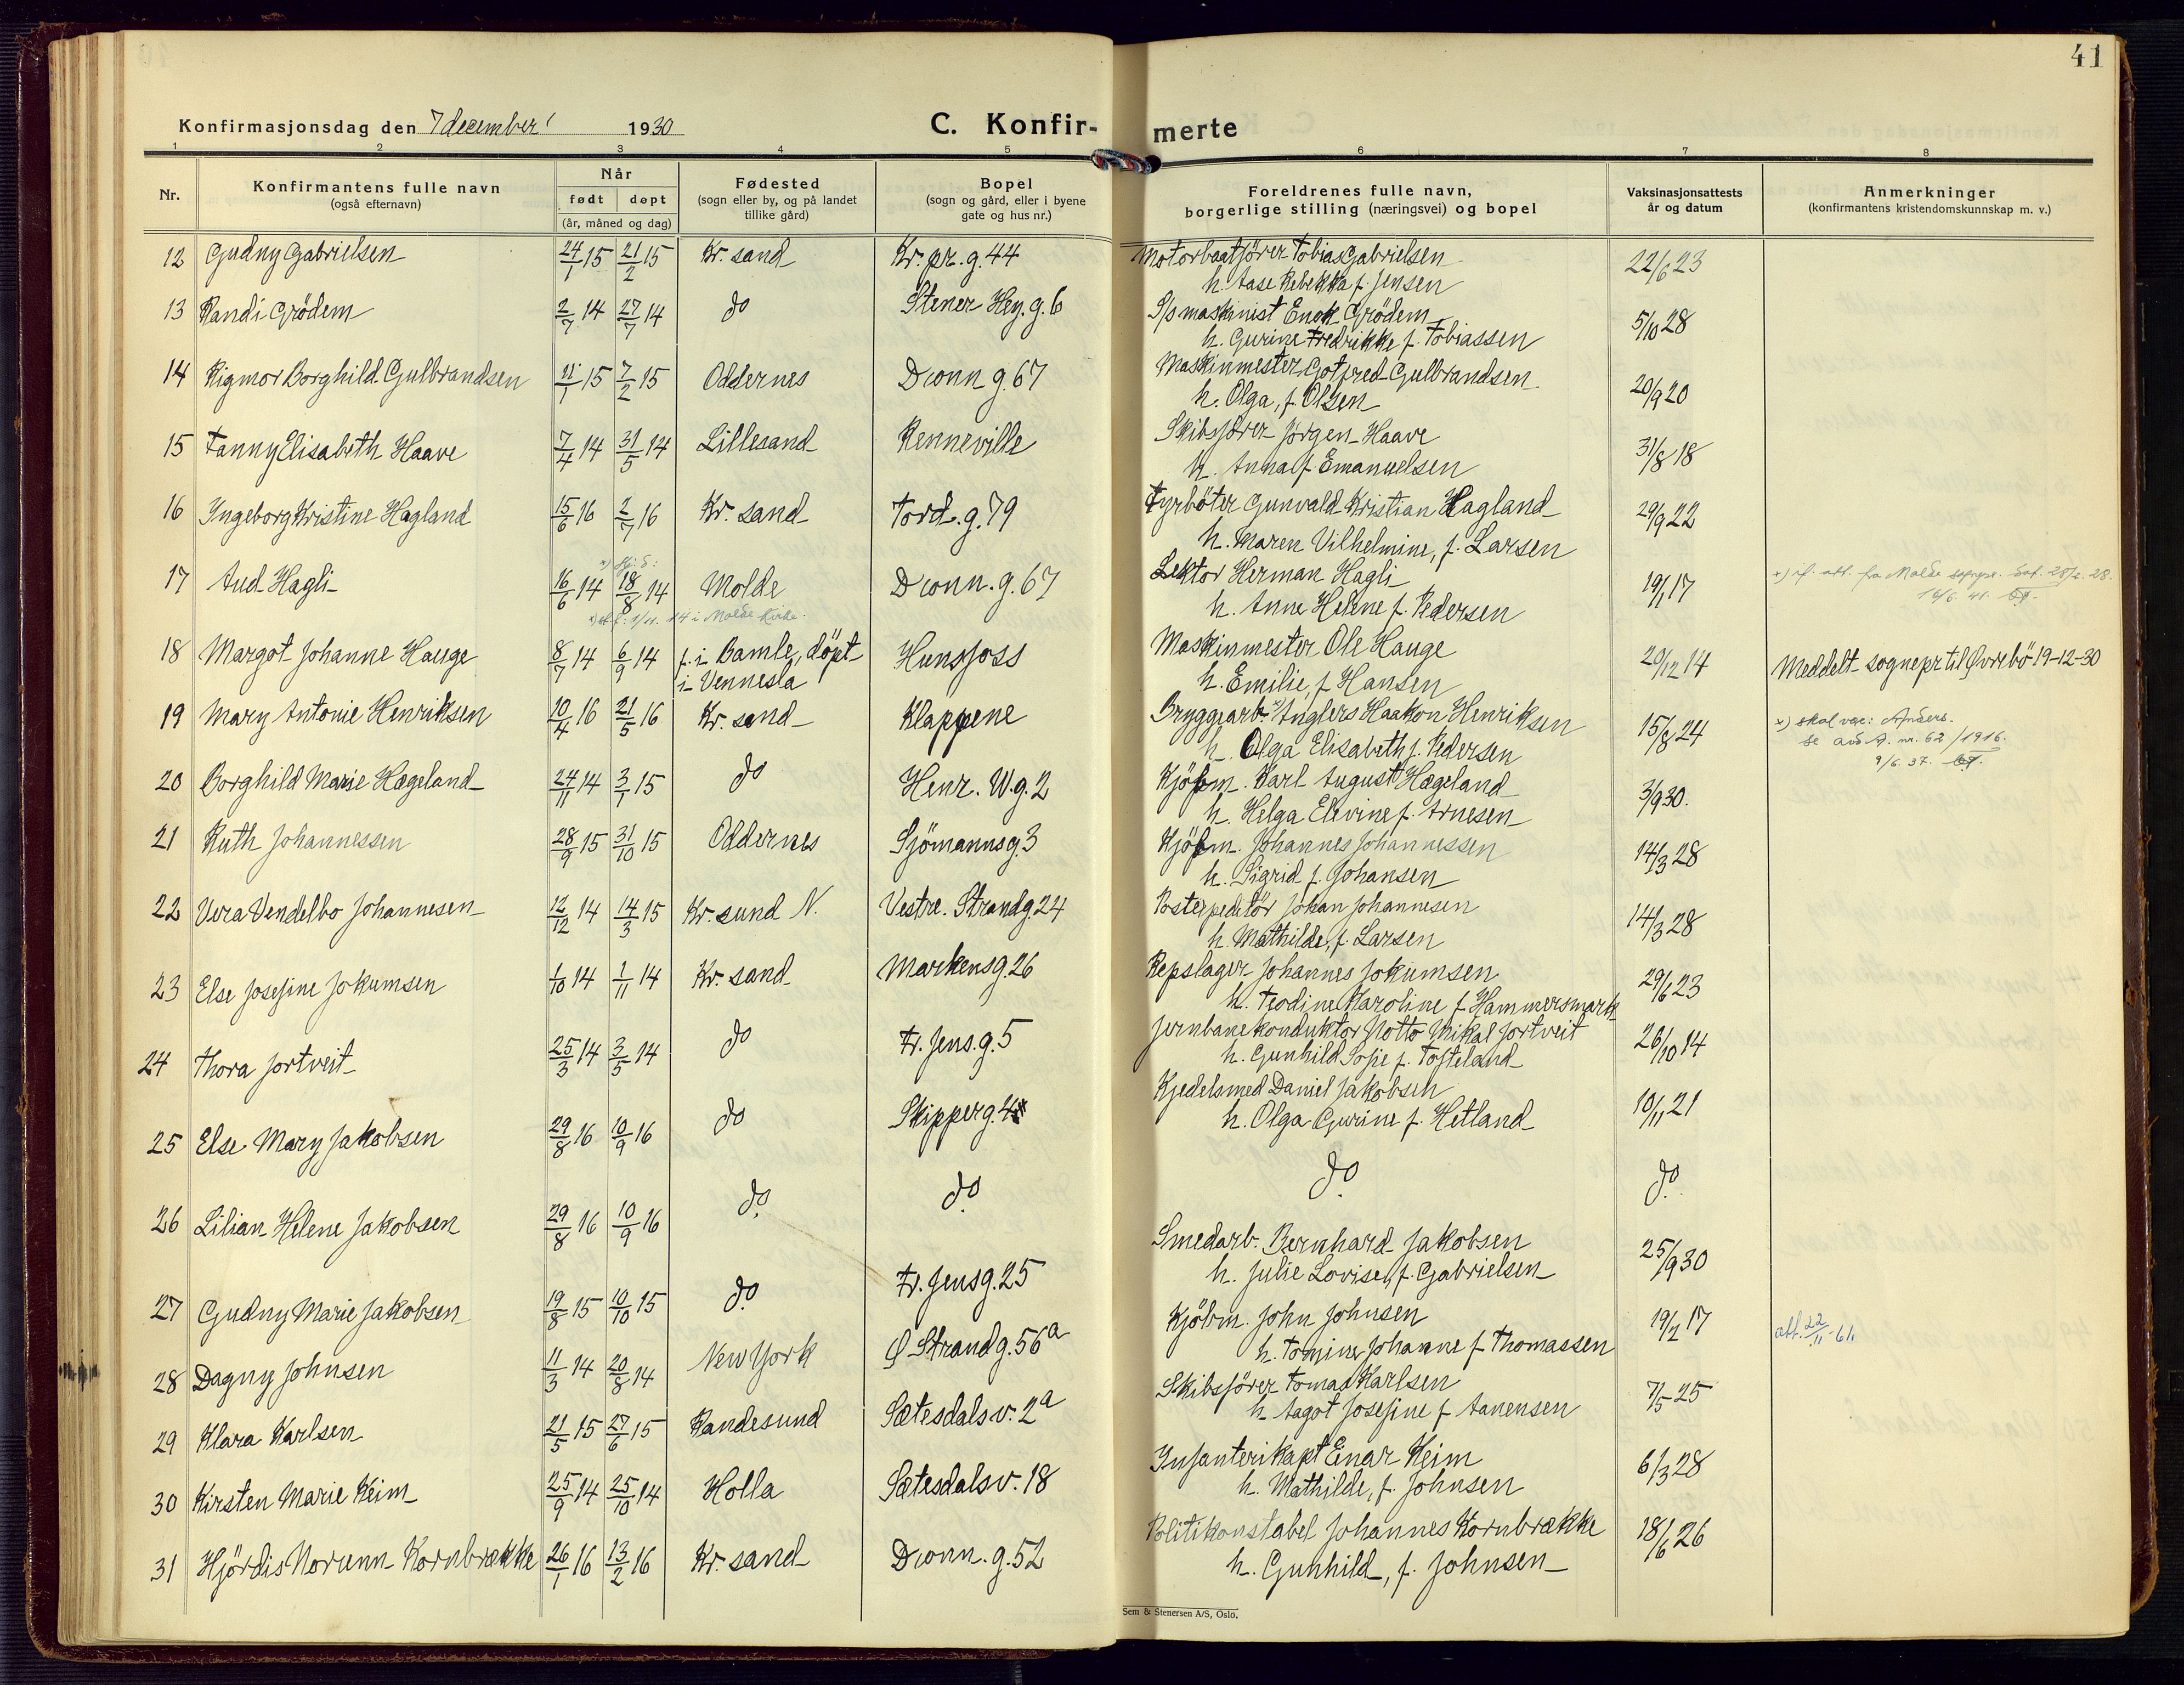 41
Konfirmasjonsdag den 7 december 1930
C. Konfir-
merte
1 2 3 4 5 6 7 8
Nr.
Konfirmantens fulle navn
(også efternavn)
Når
født døpt
(år, måned og dag)
Fødested
(sogn eller by, og på landet
tillike gård)
Bopel
(sogn og gård, eller i byene
gate og hus nr.)
Foreldrenes fulle navn,
borgerlige stilling (næringsvei) og bopel
Vaksinasjonsattests
år og datum
Anmerkninger
(konfirmantens kristendomskunnskap m. v.)
12 Gudny Gabrielsen 24/1 15 21/2 15 Kr. sand Kr. pr. g. 44 Motorbaatförer Tobias Gabrielsen 22/6 23
h. Aase Rebekka f. Jensen
13 Randi Grödem 2/7 14 27/7 14 do Stener Hey. g. 6 S/s maskinist Enok Grödem 5/10 28
h. Gurine Fredrikke f. Tobiassen
14 Rigmor Borghild Gulbrandsen 11/1 15 7/2 15 Oddernes Dronn g. 67 Maskinmester Gotfred Gulbrandsen 20/9 20
h. Olga, f. Olsen
15 Fanny Elisabeth Haave 7/4 14 31/5 14 Lillesand Renneville Skibsförer Jörgen Haave 31/8 18
h. Anna f. Emanuelsen
16 Ingeborg Kristine Hagland 15/6 16 2/7 16 Kr. sand Tord. g. 79 Fyrböter Gunvald Kristian Hagland 29/9 22
h. Maren Vilhelmine, f. Larsen
17 Aud Hagli 16/6 14 18/8 14 Molde Dronn. g. 67 Lektor Herman Hagli 19/1 17
h. Anne Helene f. Pedersen
14 i Molde Kirke.
x) if. att. fra Molde sognepr. dat. 28.
18 Margot Johanne Hauge 8/7 14 6/9 14 f. i Bamle, döpt Hunsfoss Maskinmester Ole Hauge 20/12 14 Meddelt sognepr til Øvrebö 19-12-30
i Vennesla h. Emilie, f Hansen
19 Mary Antonie Henriksen 20/4 16 21/5 16 Kr. sand Klappene Bryggearb. x) Anglers Haakon Henriksen 15/8 24 x) skal være: Anders.
h. Olga Elisabeth f. Pedersen
se avd. A. nr. 62/1916.
9/6. 37.
20 Borghild Marie Hægeland 24/11 14 3/1 15 do Henr. W. g. 2 Kjöbm. Karl August Hægeland 3/9 30.
h. Helga Elevine f. Arnesen
21 Ruth Johannessen 28/9 15 31/10 15 Oddernes Sjömannsg. 3 Kjöbm. Johannes Johannessen 14/3 28
h. Sigrid f. Johansen
22 Vera Vendelbo Johannesen 12/12 14 14/3 15 Kr. sund N. Vestre. Strandg. 24 Postexpeditör Johan Johannesen 14/3 28
h. Mathilde, f. Larsen
23 Else Josefine Jokumsen 1/10 14 1/11 14 Kr. sand Markensg. 26 Repslager Johannes Jokumsen 29/6 23
h. Teodine Karoline f Hammersmark
24 Thora Jortveit 25/3 14 3/5 14 do Fr. Jens. g. 5 Jernbanekonduktor Notto Mikal Jortveit 26/10 14
h. Gunhild Sofie f. Tofteland
25 Else Mary Jakobsen 29/8 16 10/9 16 do Skipperg. 4 Kjedelsmed Daniel Jakobsen 10/11 21
h. Olga Gurine f. Hetland
26 Lilian Helene Jakobsen 29/8 16 10/9 16 do. do. do. do.
27 Gudny Marie Jakobsen 19/8 15 10/10 15 do. Fr. Jensg. 25 Smedarb. Bernhard Jakobsen 25/9 30
h. Julie Lovise, f. Gabrielsen
28 Dagny Johnsen 11/3 14 20/8 14 New York Ø Strandg. 56a Kjöbm. John Johnsen 19/2 17 att. 22/11-61.
h. Tomine Johanne f Thomassen
29 Klara Karlsen 21/5 15 27/6 15 Randesund Sætesdalsv. 2a Skibsförer Tomas Karlsen 7/5 25
h Aagot Josefine f Aanensen
30 Kirsten Marie Keim 25/9 14 25/10 14 Holla Sætesdalsv. 18 Infanterikapt Einar Keim 6/3 28
h. Mathilde, f. Johnsen
31 Hjördis Norunn Kornbrække 26/1 16 13/2 16 Kr. sand Dronn. g. 52 Politikonstabel Johannes Kornbrække 18/6 26
h. Gunhild, f. Johnsen
Sem & Stenersen A/S, Oslo.